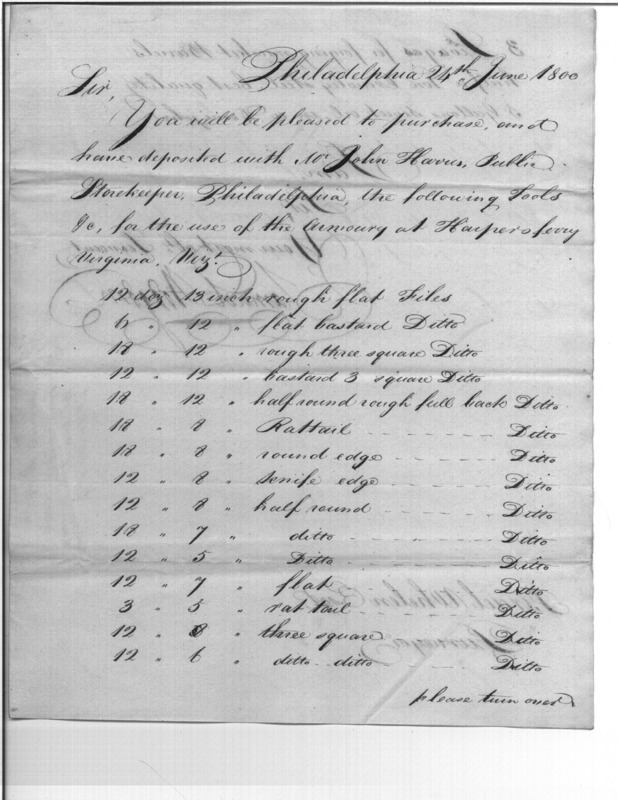 Philadelphia 24th June 1800
Sir,
You will be pleased to purchase, and
have deposited with Mr John Harris, Public
Storekeeper, Philadelphia, the following Tools
&c, for the use of the Armoury at Harpers ferry
Virginia, Vizt.
12 doz 13 inch rough flat Files
6 " 12 " flat bastard Ditto
18 " 12 " rough three square Ditto
12 " 12 " bastard 3 square Ditto
18 " 12 " half round rough full back Ditto
18 " 8 " Rattail Ditto
18 " 8 " round edge Ditto
12 " 8 " knife edge Ditto
12 " 8 " half round Ditto
18 " 7 " ditto Ditto
12 " 5 " Ditto Ditto
12 " 7 " flat Ditto
3 " 5 " rat tail Ditto
12 " 8 " three square Ditto
12 " 6 " ditto ditto Ditto
please turn over